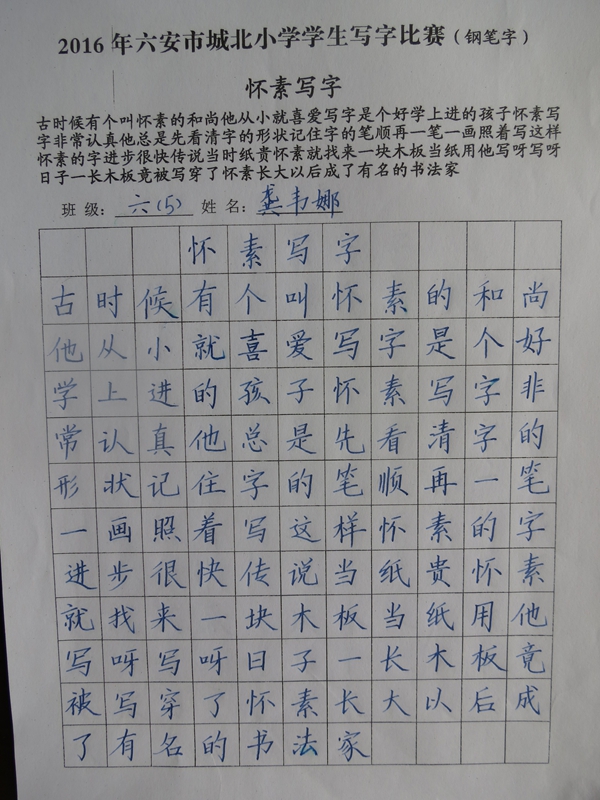 2016年六安市城北小学学生写字比赛（钢笔字）
怀素写字
古时候有个叫怀素的和尚他从小就喜爱写字是个好学上进的孩子怀素写
字非常认真他总是先看清字的形状记住字的笔顺再一笔一画照着写这样
怀素的字进步很快传说当时纸贵怀素就找来一块木板当纸用他写呀写呀
日子一长木板竟被写穿了怀素长大以后成了有名的书法家
班级：六（5） 姓名：龚韦娜
怀素写字
古时候有个叫怀素的和尚
他从小就喜爱写字是个好
学上进的孩子怀素写字非
常认真他总是先看清字的
形状记住字的笔顺再一笔
一画照着写这样怀素的字
进步很快传说当纸贵怀素
就找来一块木板当纸用他
写呀写呀日子一长木板竟
被写穿了怀素长大以后成
了有名的书法家